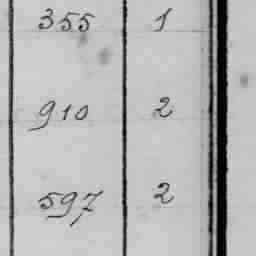 355 1
910 2
597 2